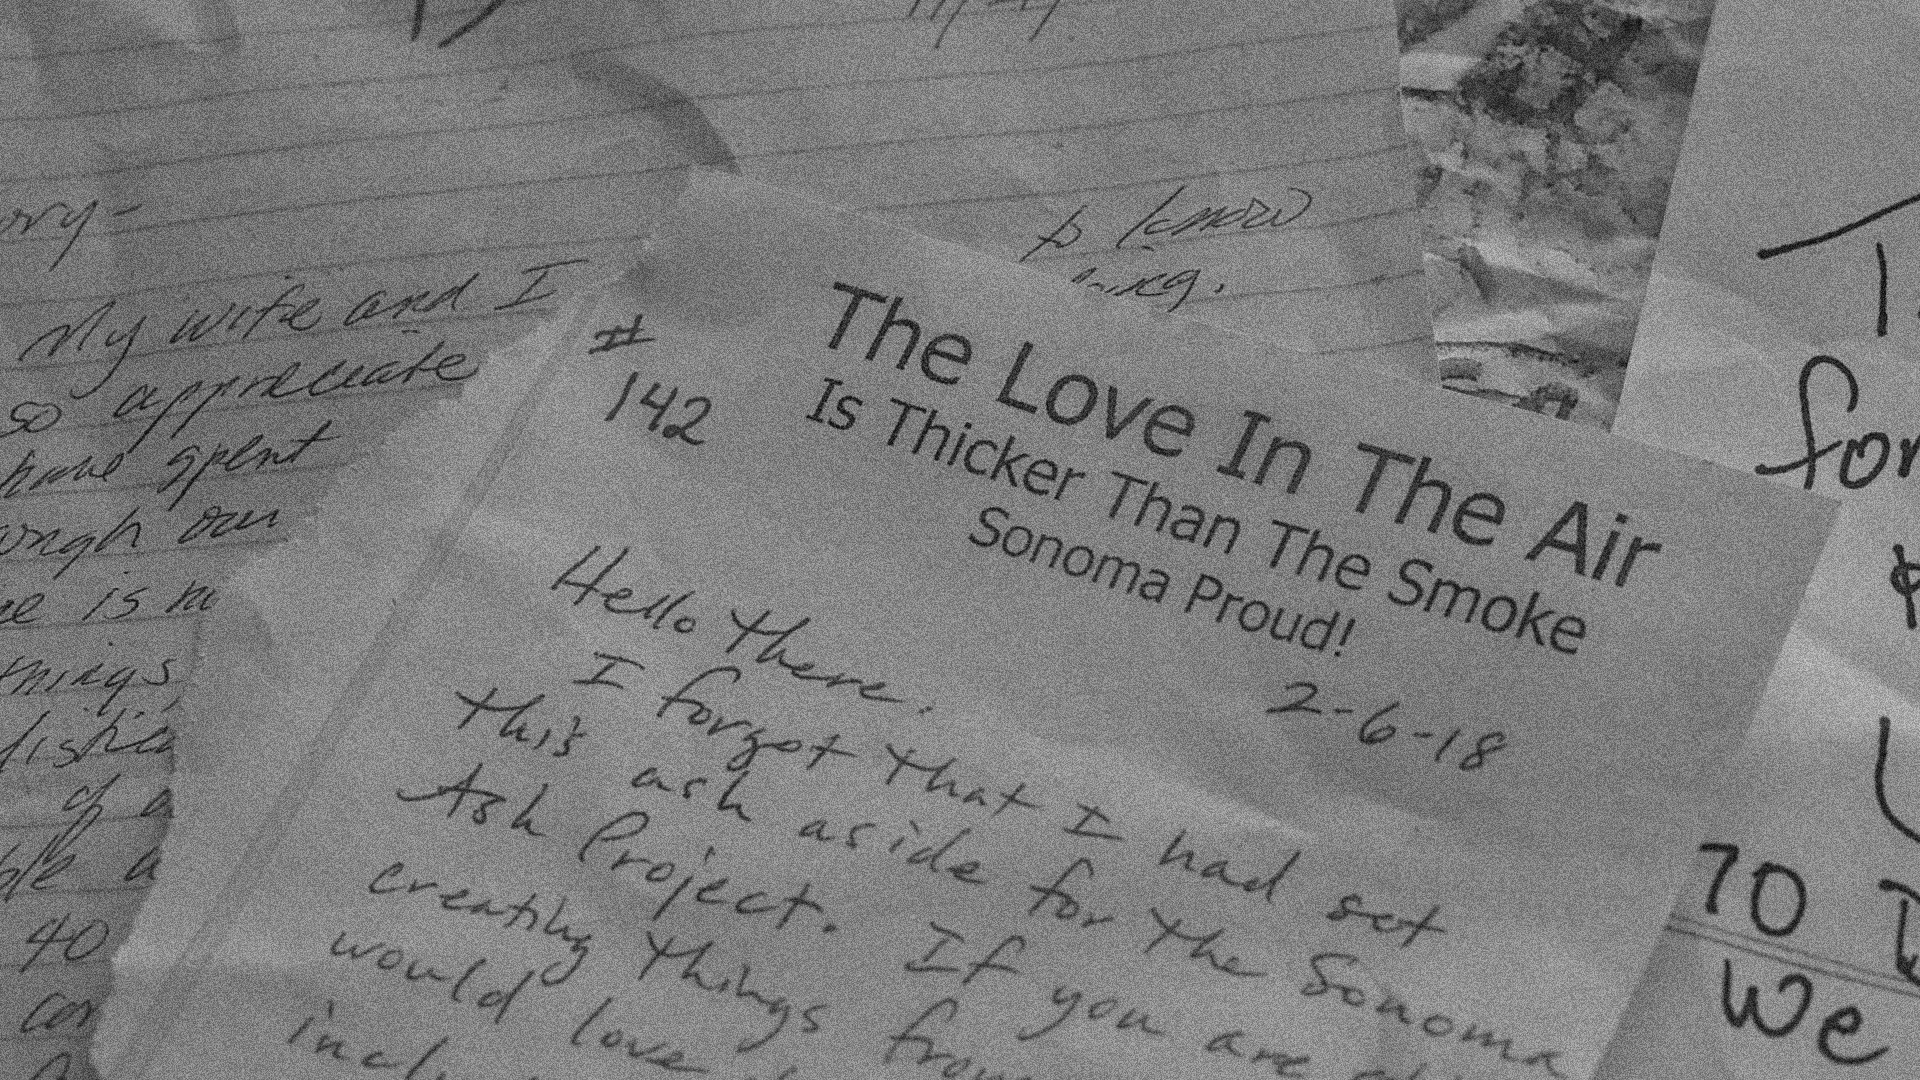 to know
My wife and I
so appreciate
have spent
our
is
things,
of a
a
40
#
142
The Love In The Air
Is Thicker Than The Smoke
Sonoma Proud!
2-6-18
Hello there.
I forgot that I had set
this ash aside for the Sonoma
Ash Project. If you are
creating things from
would love
for
70
We